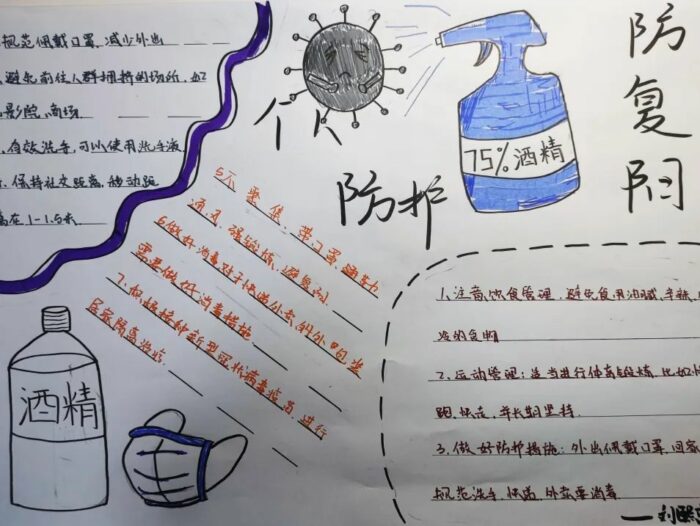 规范佩戴口罩,减少外出
避免前往人群拥挤的场所,如
影院、商场
有效洗手,可以使用洗手液
保持社交距离,移动距
离在1-1.5米
个人
防护
防复阳
75%酒精
5不聚集,带口罩,通勤
通风,强锻炼
6做好消毒对于快递外卖
需要做好消毒措施
7.积极接种新型冠状病毒疫苗,进行
居家隔离治疗
酒精
1.注意饮食管理,避免食用油腻、辛辣
的食物
2.运动管理:适当进行体育锻炼,比如
跑、快走,并长期坚持.
3.做好防护措施:外出佩戴口罩,回家
规范洗手,快递、外卖要消毒